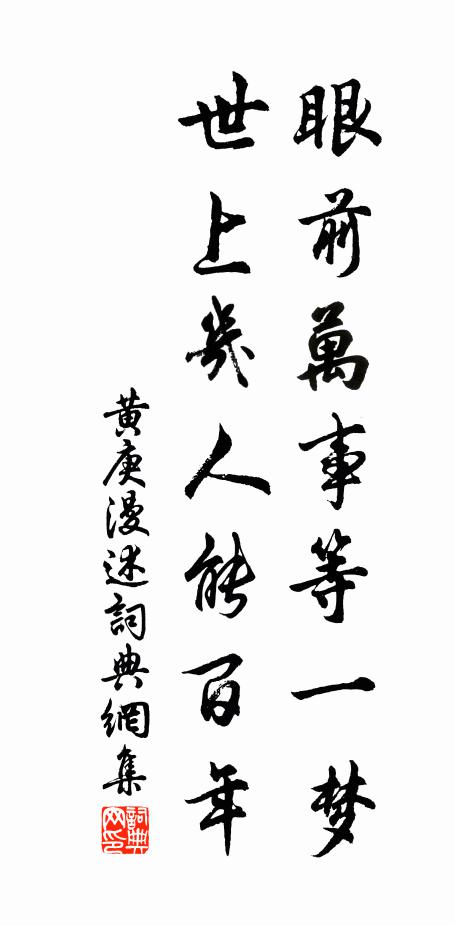 眼前萬事等一梦
世上幾人能百年
黄庚漫述詞典網集
詞典
网印